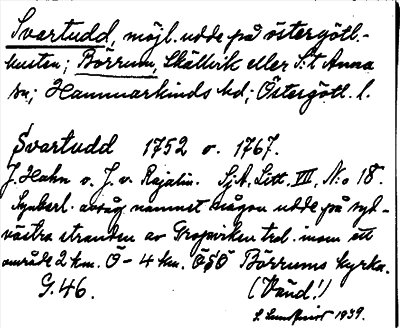 Svartudd, möjl. udde på östergötl.-
kusten; Börrum, Skällvik eller S:t Anna
sn; Hammarkinds hd; Östergötl. l.
Svartudd 1752 o. 1767.
J. Hahn o. J. v. Rajalin. Sj.k. Litt. VIII, N:o 18.
Synbarl. avsåg namnet någon udde på syd-
västra stranden av Gropviken trol. inom ett
område 2 km. Ö - 4 km. ÖSÖ Börrums kyrka.
G. 46. (Vänd!)
S. 1939.